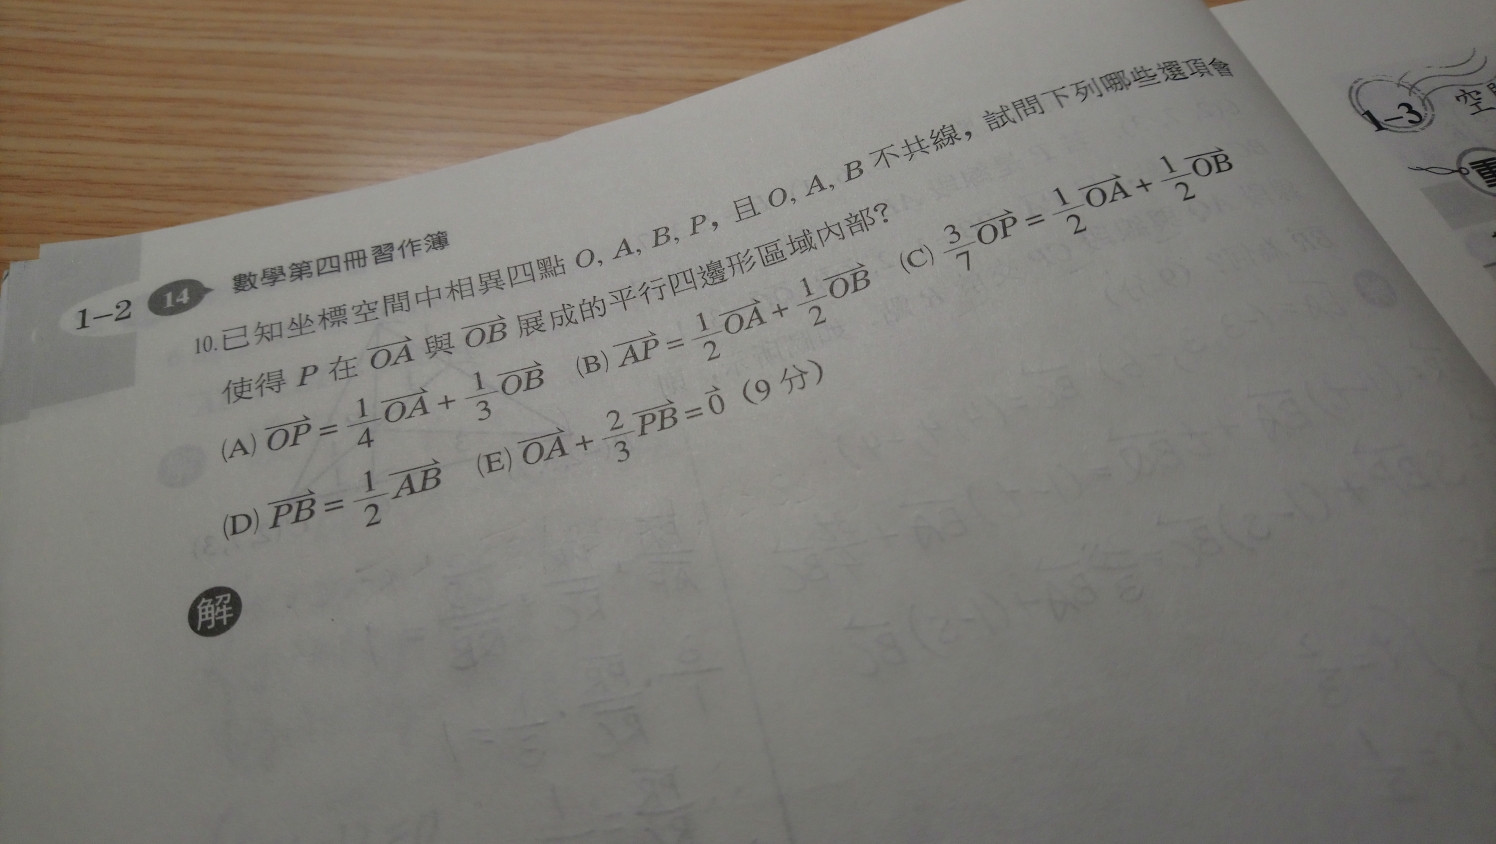 1-2 14 數學第四冊習作簿
10.已知坐標空間中相異四點 O, A, B, P，且 O, A, B 不共線，試問下列哪些選項會
使得 P 在 \overrightarrow{OA} 與 \overrightarrow{OB} 展成的平行四邊形區域內部？
(A) \overrightarrow{OP} = \frac{1}{4}\overrightarrow{OA} + \frac{1}{3}\overrightarrow{OB} (B) \overrightarrow{AP} = \frac{1}{2}\overrightarrow{OA} + \frac{1}{2}\overrightarrow{OB} (C) \frac{3}{7}\overrightarrow{OP} = \frac{1}{2}\overrightarrow{OA} + \frac{1}{2}\overrightarrow{OB}
(D) \overrightarrow{PB} = \frac{1}{2}\overrightarrow{AB} (E) \overrightarrow{OA} + \frac{2}{3}\overrightarrow{PB} = \vec{0}（9 分）
解
1-3 空
重